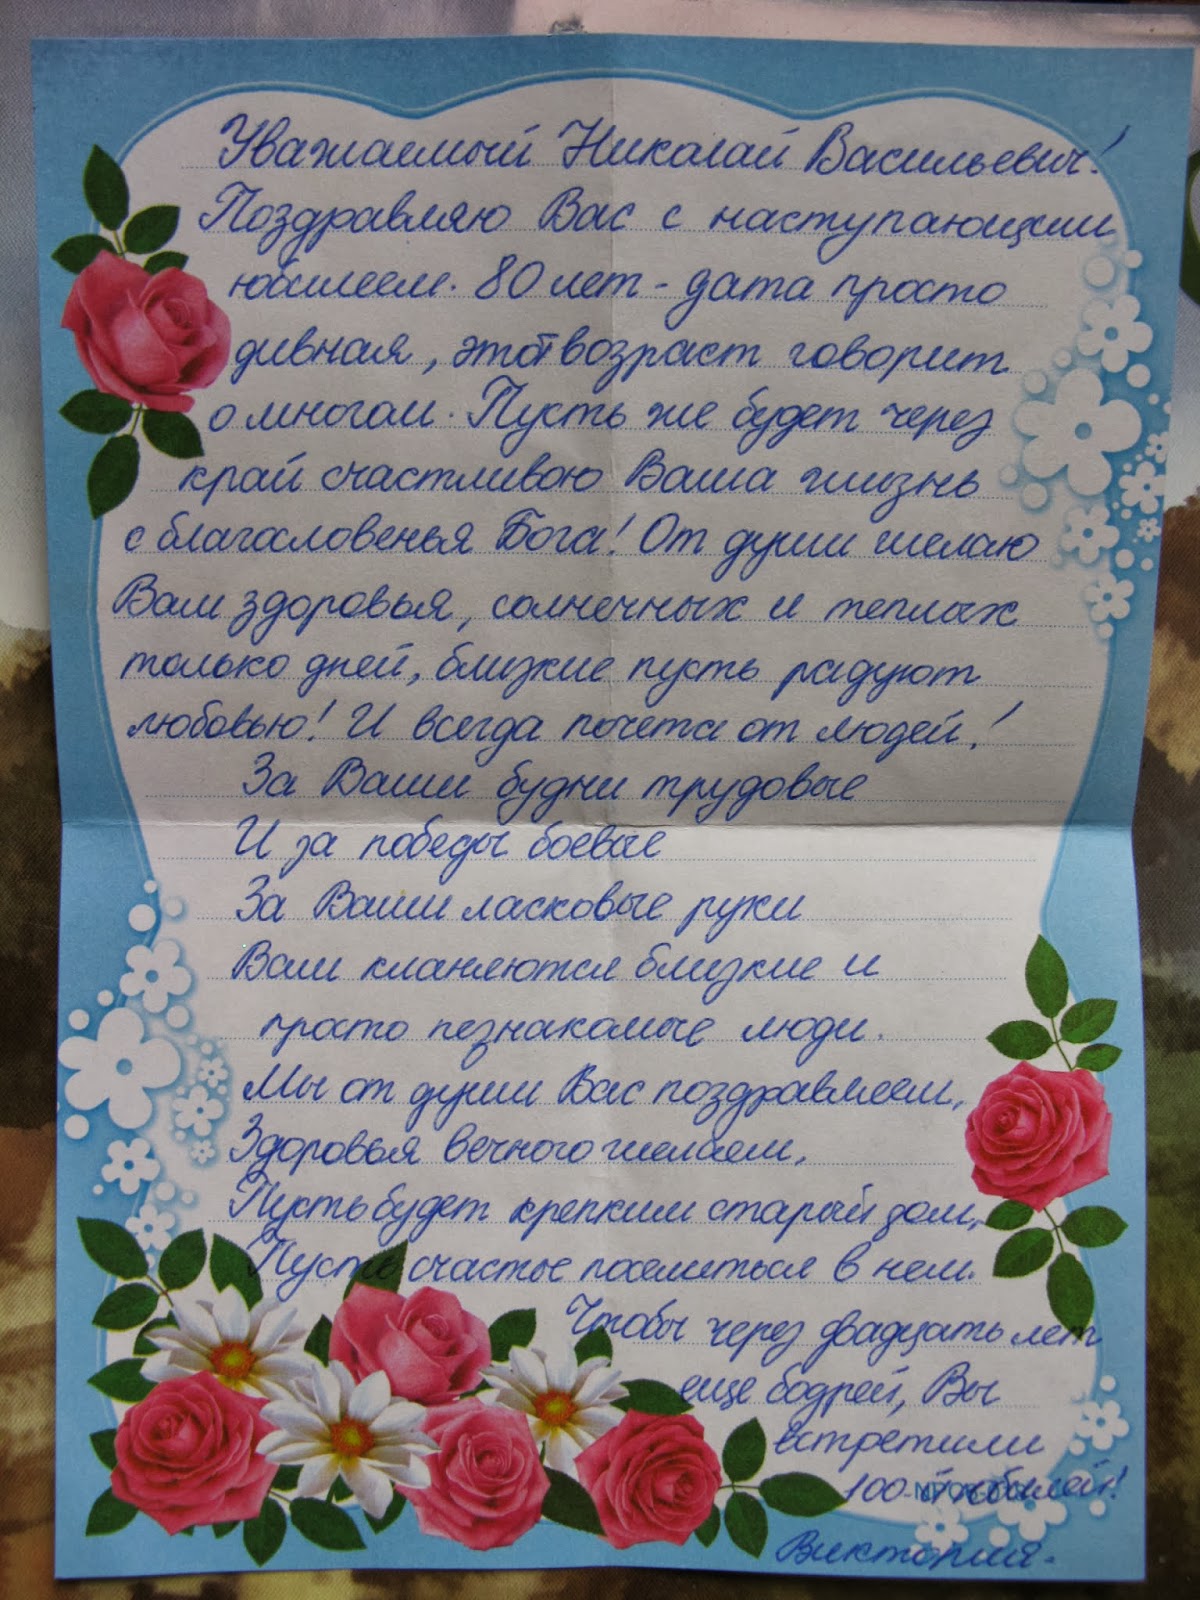 Уважаемый Николай Васильевич!
Поздравляю Вас с наступающим
юбилеем. 80 лет - дата просто
дивная, этот возраст говорит
о многом. Пусть же будет через
край счастливою Ваша жизнь
с благословенья Бога! От души желаю
Вам здоровья, солнечных и теплых
только дней, близкие пусть радуют
любовью! И всегда почета от людей!
За Ваши будни трудовые
И за победы боевые
За Ваши ласковые руки
Вам кланяются близкие и
просто незнакомые люди.
Мы от души Вас поздравляем,
Здоровья вечного желаем,
Пусть будет крепким старый дом,
Пусть счастье поселиться в нем.
Чтобы через двадцать лет
еще бодрей, Вы
встретили
100-й юбилей!
Виктория.